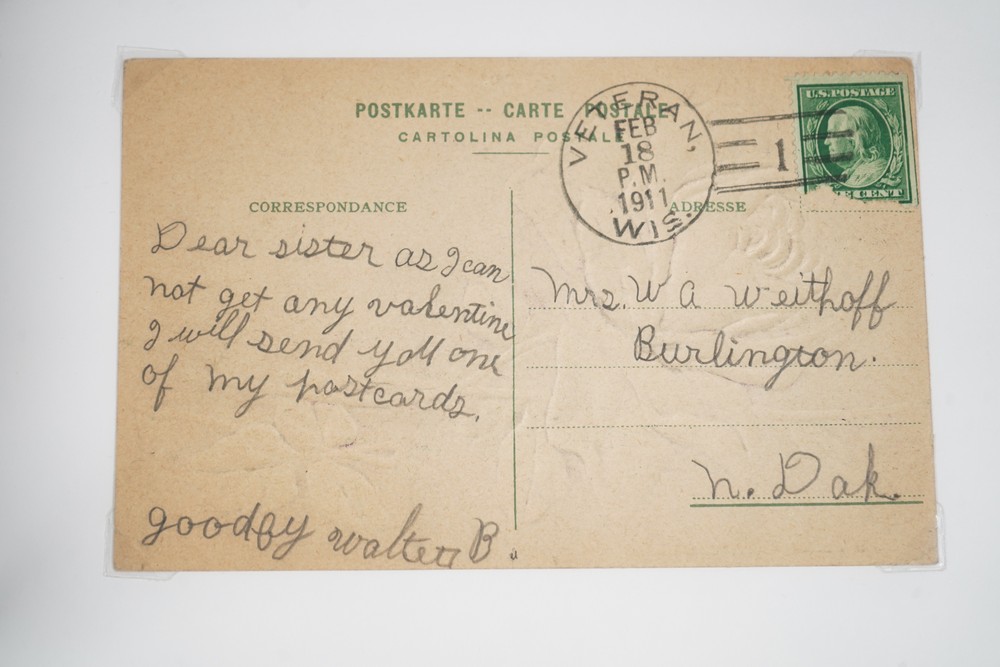 POSTKARTE -- CARTE POSTALE
CARTOLINA POSTALE
VETERAN,
FEB
18
P.M.
1911
WIS.
1
U.S. POSTAGE
CENT
CORRESPONDANCE
ADRESSE
Dear sister as I can
not get any valentine
I will send you one
of my postcards.
goodby walter B.
Mrs. W A Weithoff
Burlington.
N. Dak.